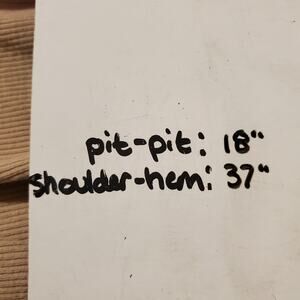 pit-pit: 18"
shoulder-hem: 37"